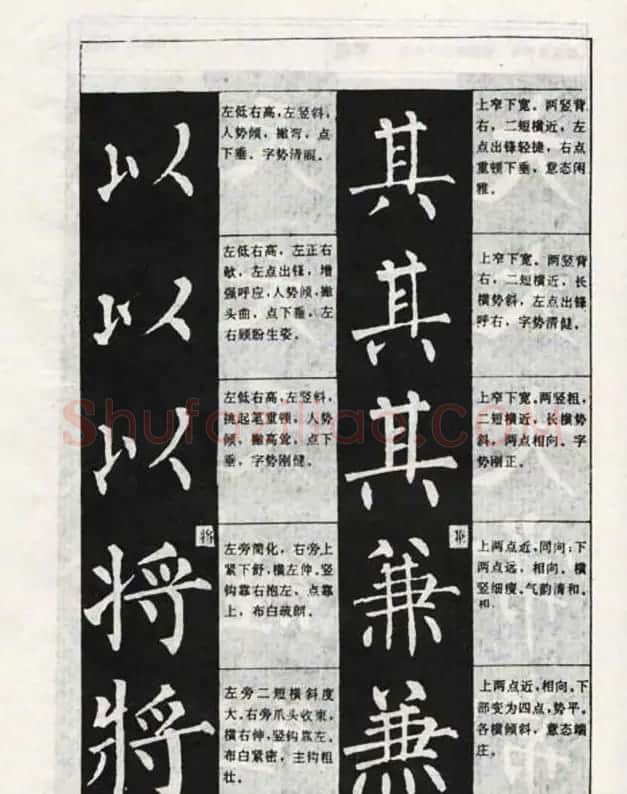 其
上窄下宽。两竖背
右，二短横近，左
点出锋轻捷，右点
重顿下垂，意态闲
雅。
其
上窄下宽。两竖背
右，二短横近，长
横势斜，左点出锋
呼右，字势清健。
其
上窄下宽。两竖粗，
二短横近，长横势
斜，两点相向。字
势刚正。
兼
兼
上两点近，同向；下
两点远，相向。横
竖细瘦。气韵清和。
兼
上两点近，相向。下
部变为四点，势平。
各横倾斜，意态端
庄。
以
左低右高，左竖斜，
人势倾，撇弯，点
下垂。字势清丽。
以
左低右高，左正右
欹，左点出锋，增
强呼应，人势倾，撇
头曲，点下垂，左
右顾盼生姿。
以
左低右高，左竖斜，
挑起笔重顿，人势
倾，撇高耸，点下
垂，字势刚健。
將
将
左旁简化，右旁上
紧下舒，横左伸。竖
钩靠右抱左，点靠
上，布白疏朗。
將
左旁二短横斜度
大。右旁爪头收束，
横右伸，竖钩靠左。
布白紧密，主钩粗
壮。
Shufaziliao.COM